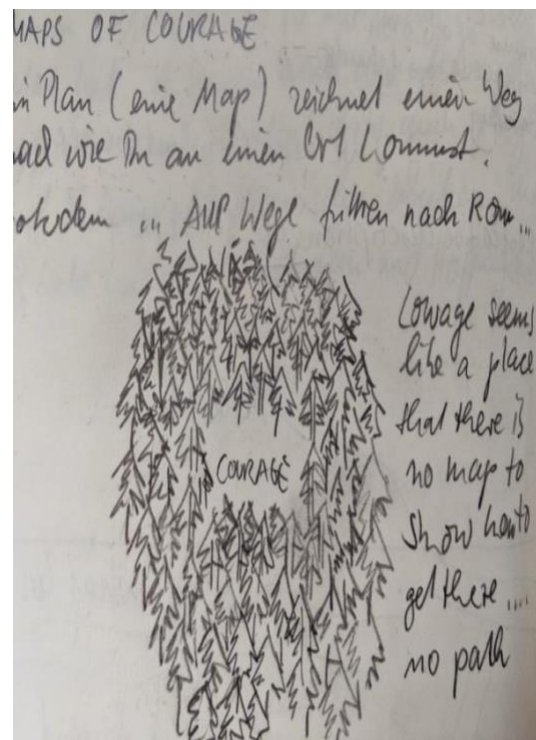 MAPS OF COURAGE
in Plan (eine Map) zeichnet einen Weg
nach wie Du an einen Ort kommst.
trotzdem ... Alle Wege führen nach Rom...
COURAGE
Courage seems
like a place
that there is
no map to
show how to
get there ....
no path